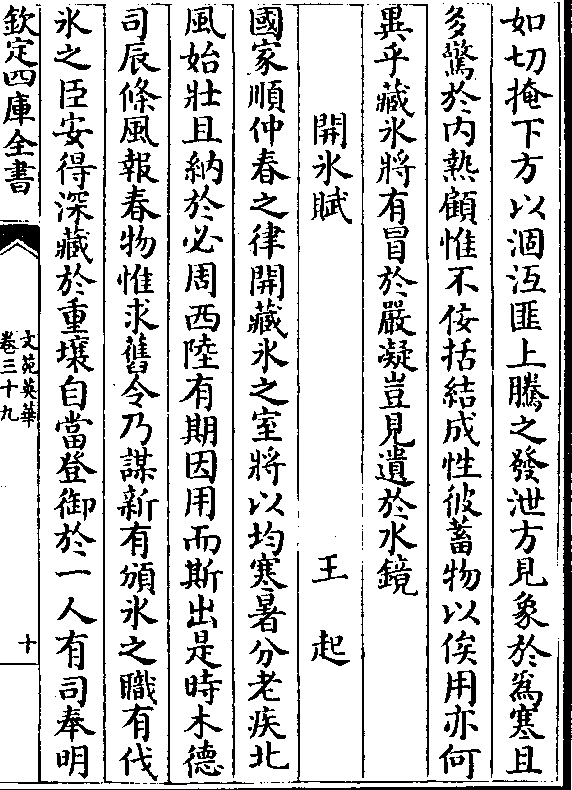 如切掩下方以涸沍匪上騰之發泄方見象於爲寒且
多驚於内熱顧惟不佞括結成性彼蓄物以俟用亦何
異乎藏氷將有冒於嚴凝豈見遺於水鏡
開氷賦 王起
國家順仲春之律開藏氷之室將以均寒暑分老疾北
風始壯且納於必周西陸有期因用而斯出是時木德
司辰條風報春物惟求舊令乃謀新有頒氷之職有伐
氷之臣安得深藏於重壤自當登御於一人有司奉明
欽定四庫全書
文苑英華
卷三十九
十